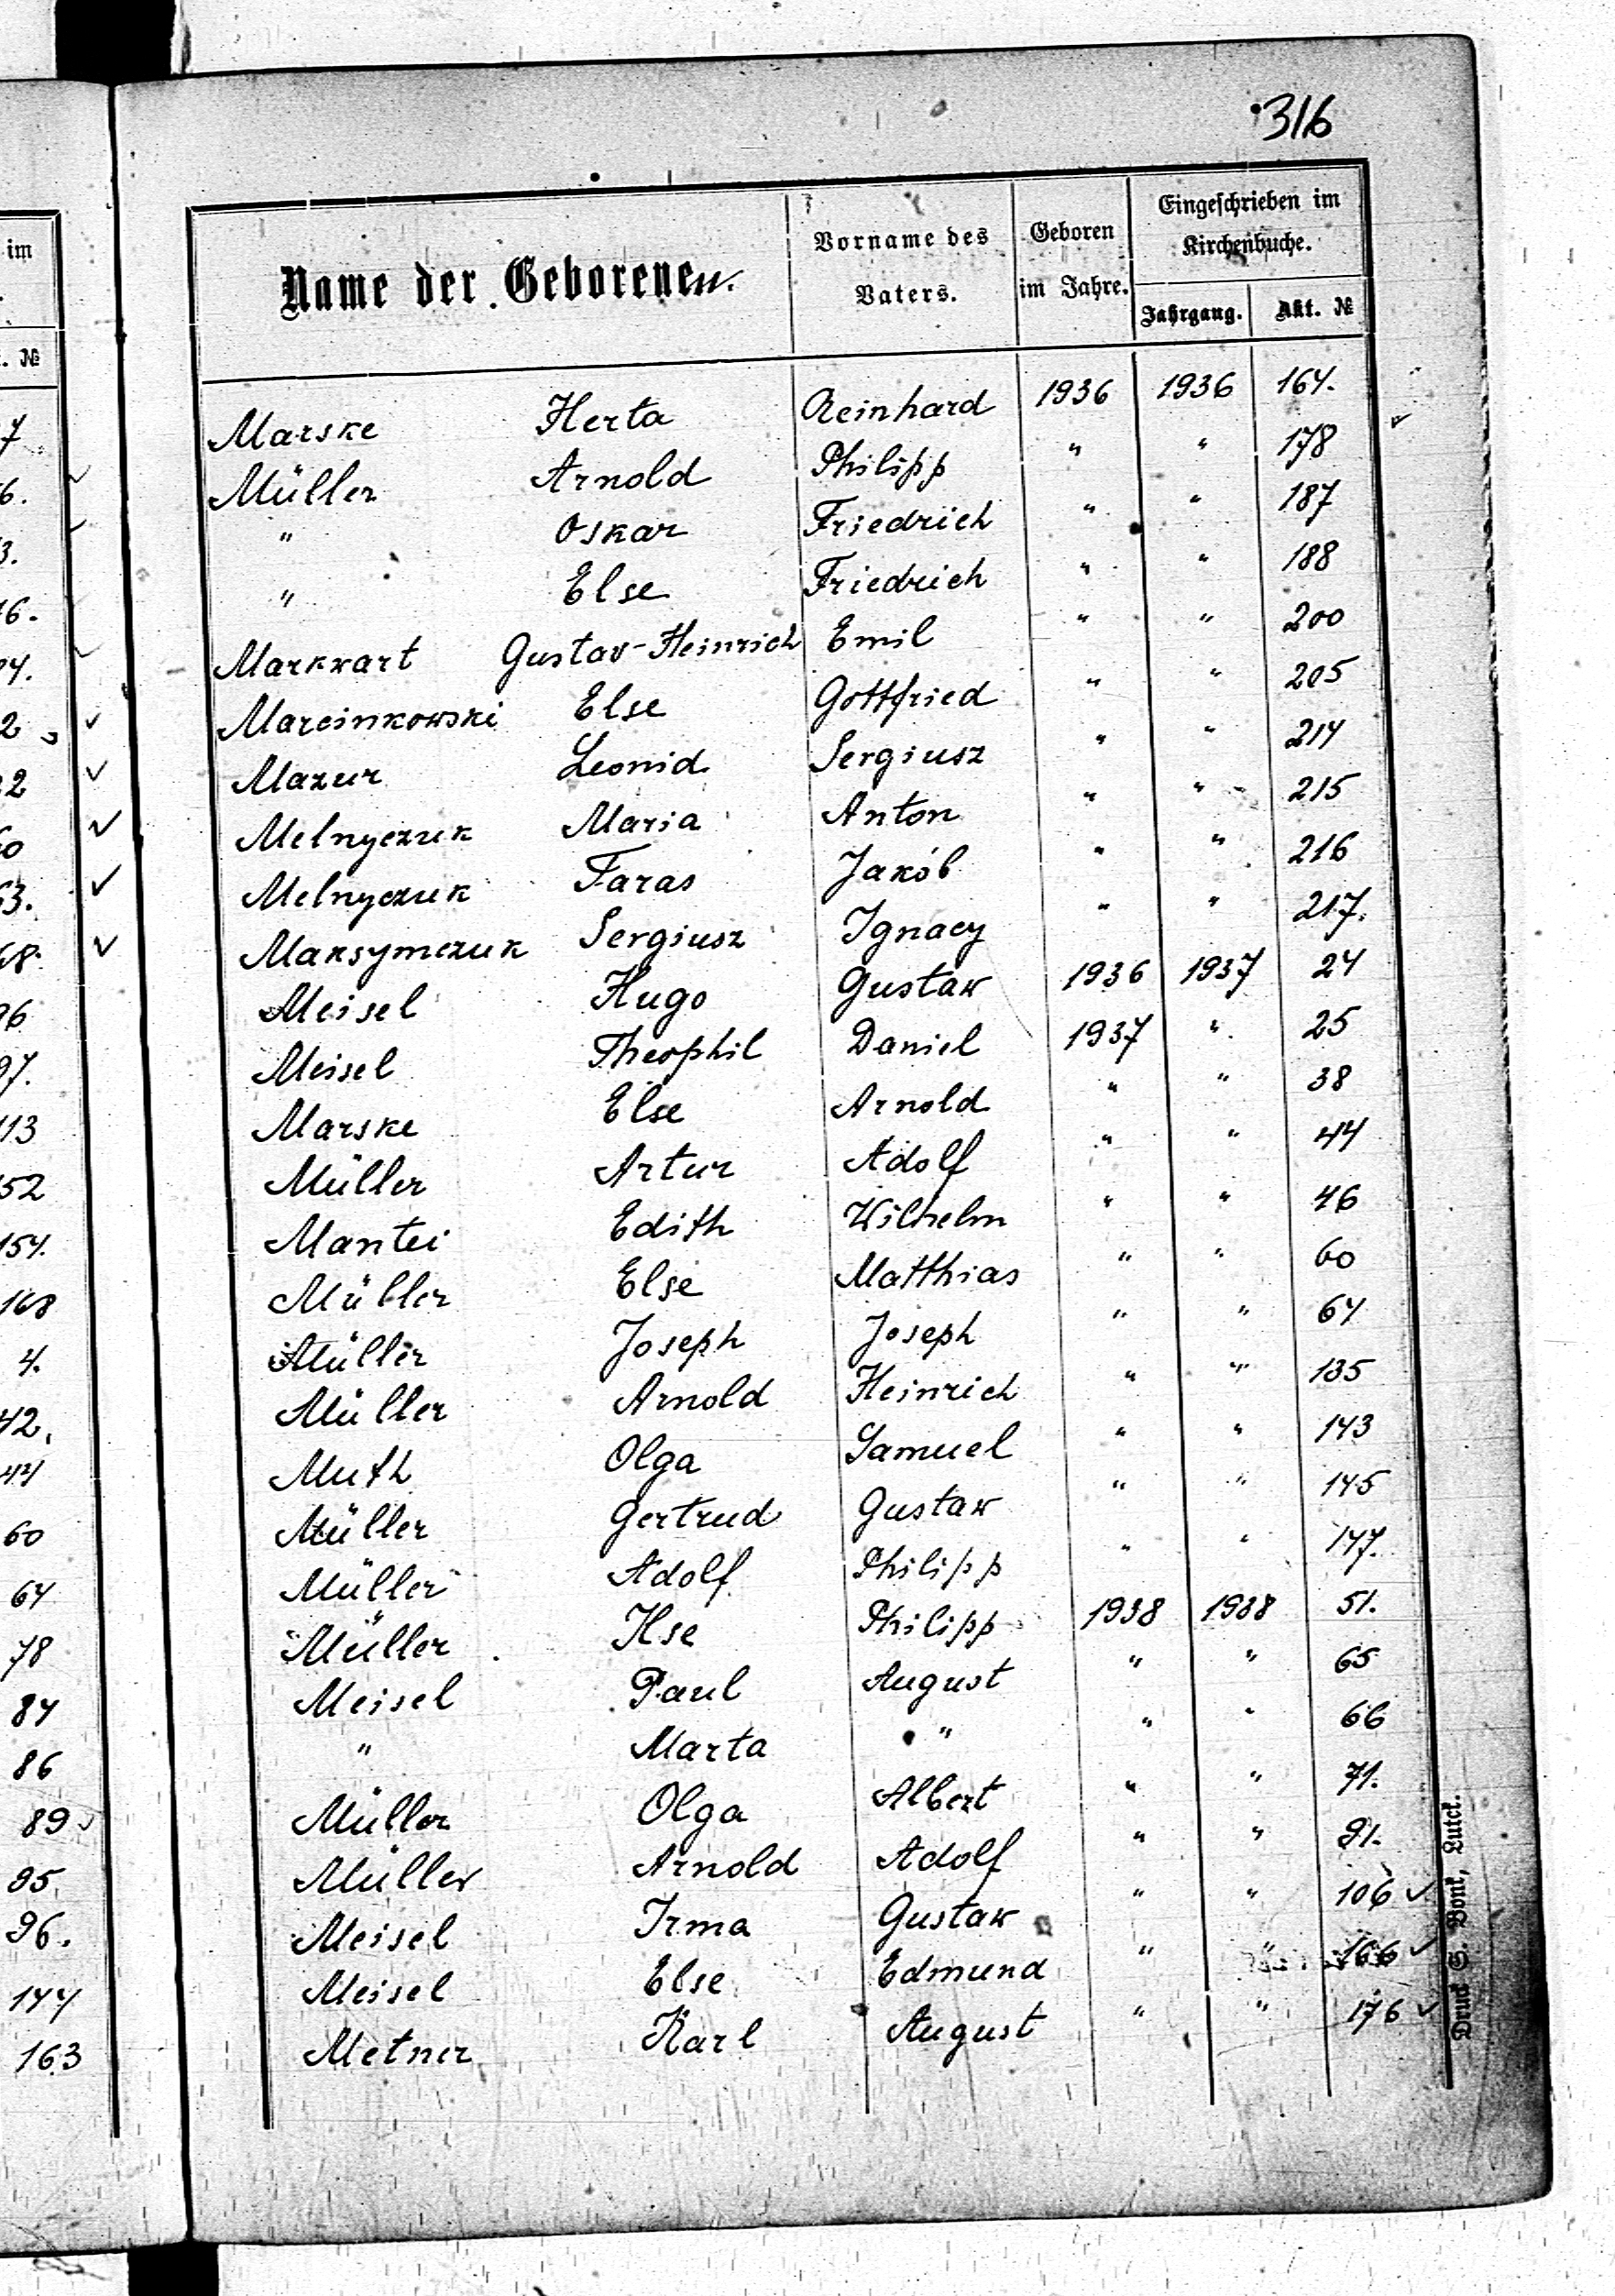 316
im
. №
7
6.
3.
16.
04.
2
22
60
63.
68.
96
97.
113
152
154.
168
4.
42.
44
60
64
78
84
86
89
95
96.
144
163
Name der Geborenen.
Vorname des Vaters.
Geboren im Jahre.
Eingeschrieben im Kirchenbuche.
Jahrgang. Akt. №
Marske Herta Reinhard 1936 1936 164.
Müller Arnold Philipp " " 178
" Oskar Friedrich " " 187
" Else Friedrich " " 188
Markwart Gustav-Heinrich Emil " " 200
Marcinkowski Else Gottfried " " 205
Mazur Leonid Sergiusz " " 214
Melnyczuk Maria Anton " " 215
Melnyczuk Taras Jakób " " 216
Maksymczuk Sergiusz Ignacy " " 217.
Meisel Hugo Gustaw 1936 1937 24
Meisel Theophil Daniel 1937 " 25
Marske Else Arnold " " 38
Müller Artur Adolf " " 44
Mantei Edith Wilhelm " " 46
Müller Else Matthias " " 60
Müller Joseph Joseph " " 64
Müller Arnold Heinrich " " 135
Muth Olga Samuel " " 143
Müller Gertrud Gustaw " " 145
Müller Adolf Philipp " " 147.
Müller Ilse Philipp 1938 1938 51.
Meisel Paul August " " 65
" Marta " " " 66
Müller Olga Albert " " 71.
Müller Arnold Adolf " " 91.
Meisel Irma Gustaw " " 106
Meisel Else Edmund " " 166
Metner Karl August " " 176
Druck S. Bonk, Lutck.